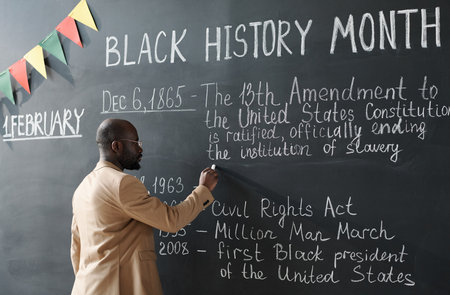 BLACK HISTORY MONTH
1 FEBRUARY
Dec 6, 1865 - The 13th Amendment to
the United States Constitution
is ratified, officially ending
the institution of slavery
1963
Civil Rights Act
Million Man March
2008 - first Black president
of the United States